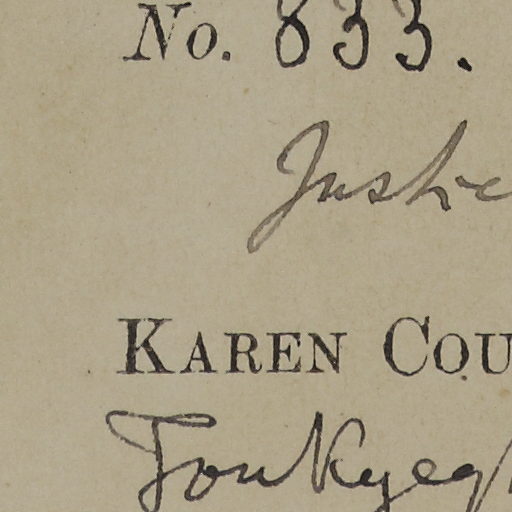 No. 833.
Justice
KAREN COU
Toukyegh